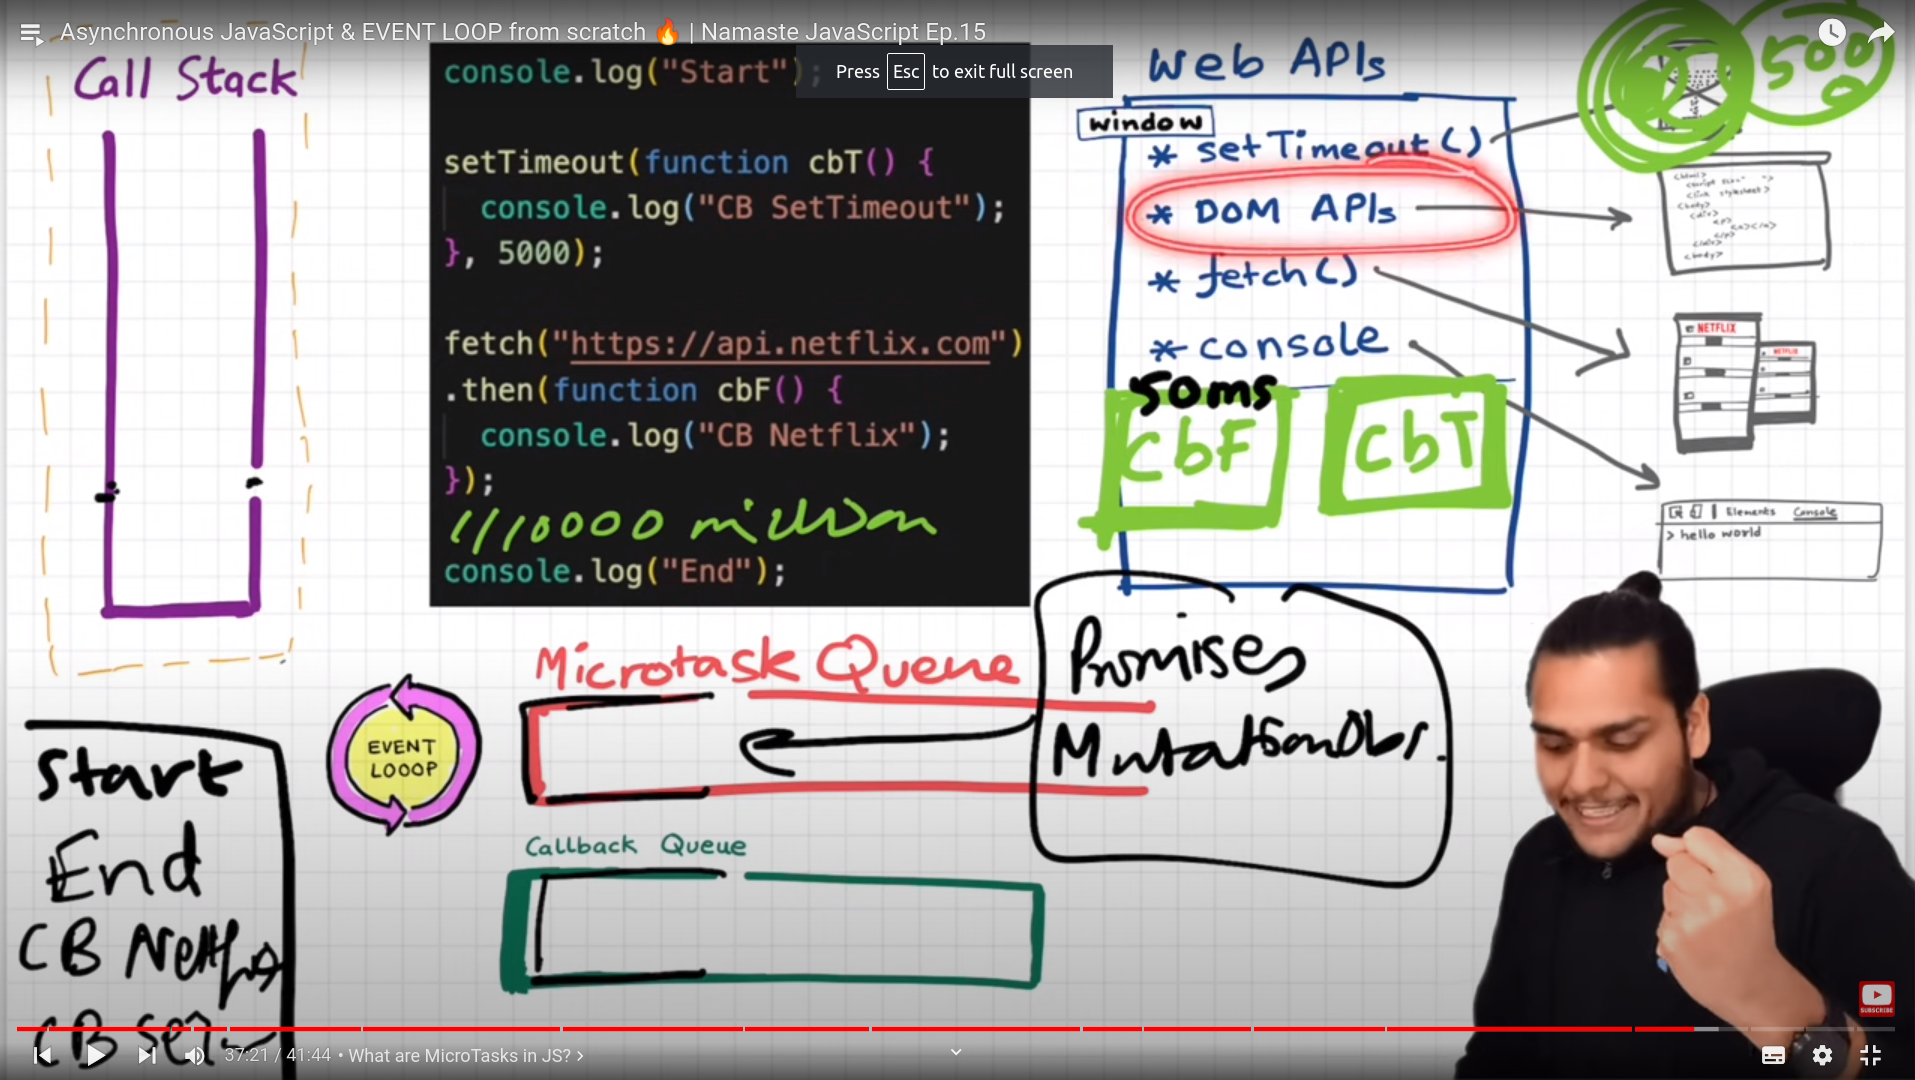 Asynchronous JavaScript & EVENT LOOP from scratch 🔥 | Namaste JavaScript Ep.15
Press Esc to exit full screen
Call Stack
console.log("Start");
setTimeout(function cbT() {
console.log("CB SetTimeout");
}, 5000);
fetch("https://api.netflix.com")
.then(function cbF() {
console.log("CB Netflix");
});
//10000 million
console.log("End");
Web APIs
window
* setTimeout()
* DOM APIs
* fetch()
* console
50ms
CbF
CbT
5000
NETFLIX
NETFLIX
Elements Console
> hello world
Microtask Queue
Promises
EVENT
LOOOP
Callback Queue
Start
End
CB Netflix
CB
37:21 / 41:44 • What are MicroTasks in JS? ›
SUBSCRIBE